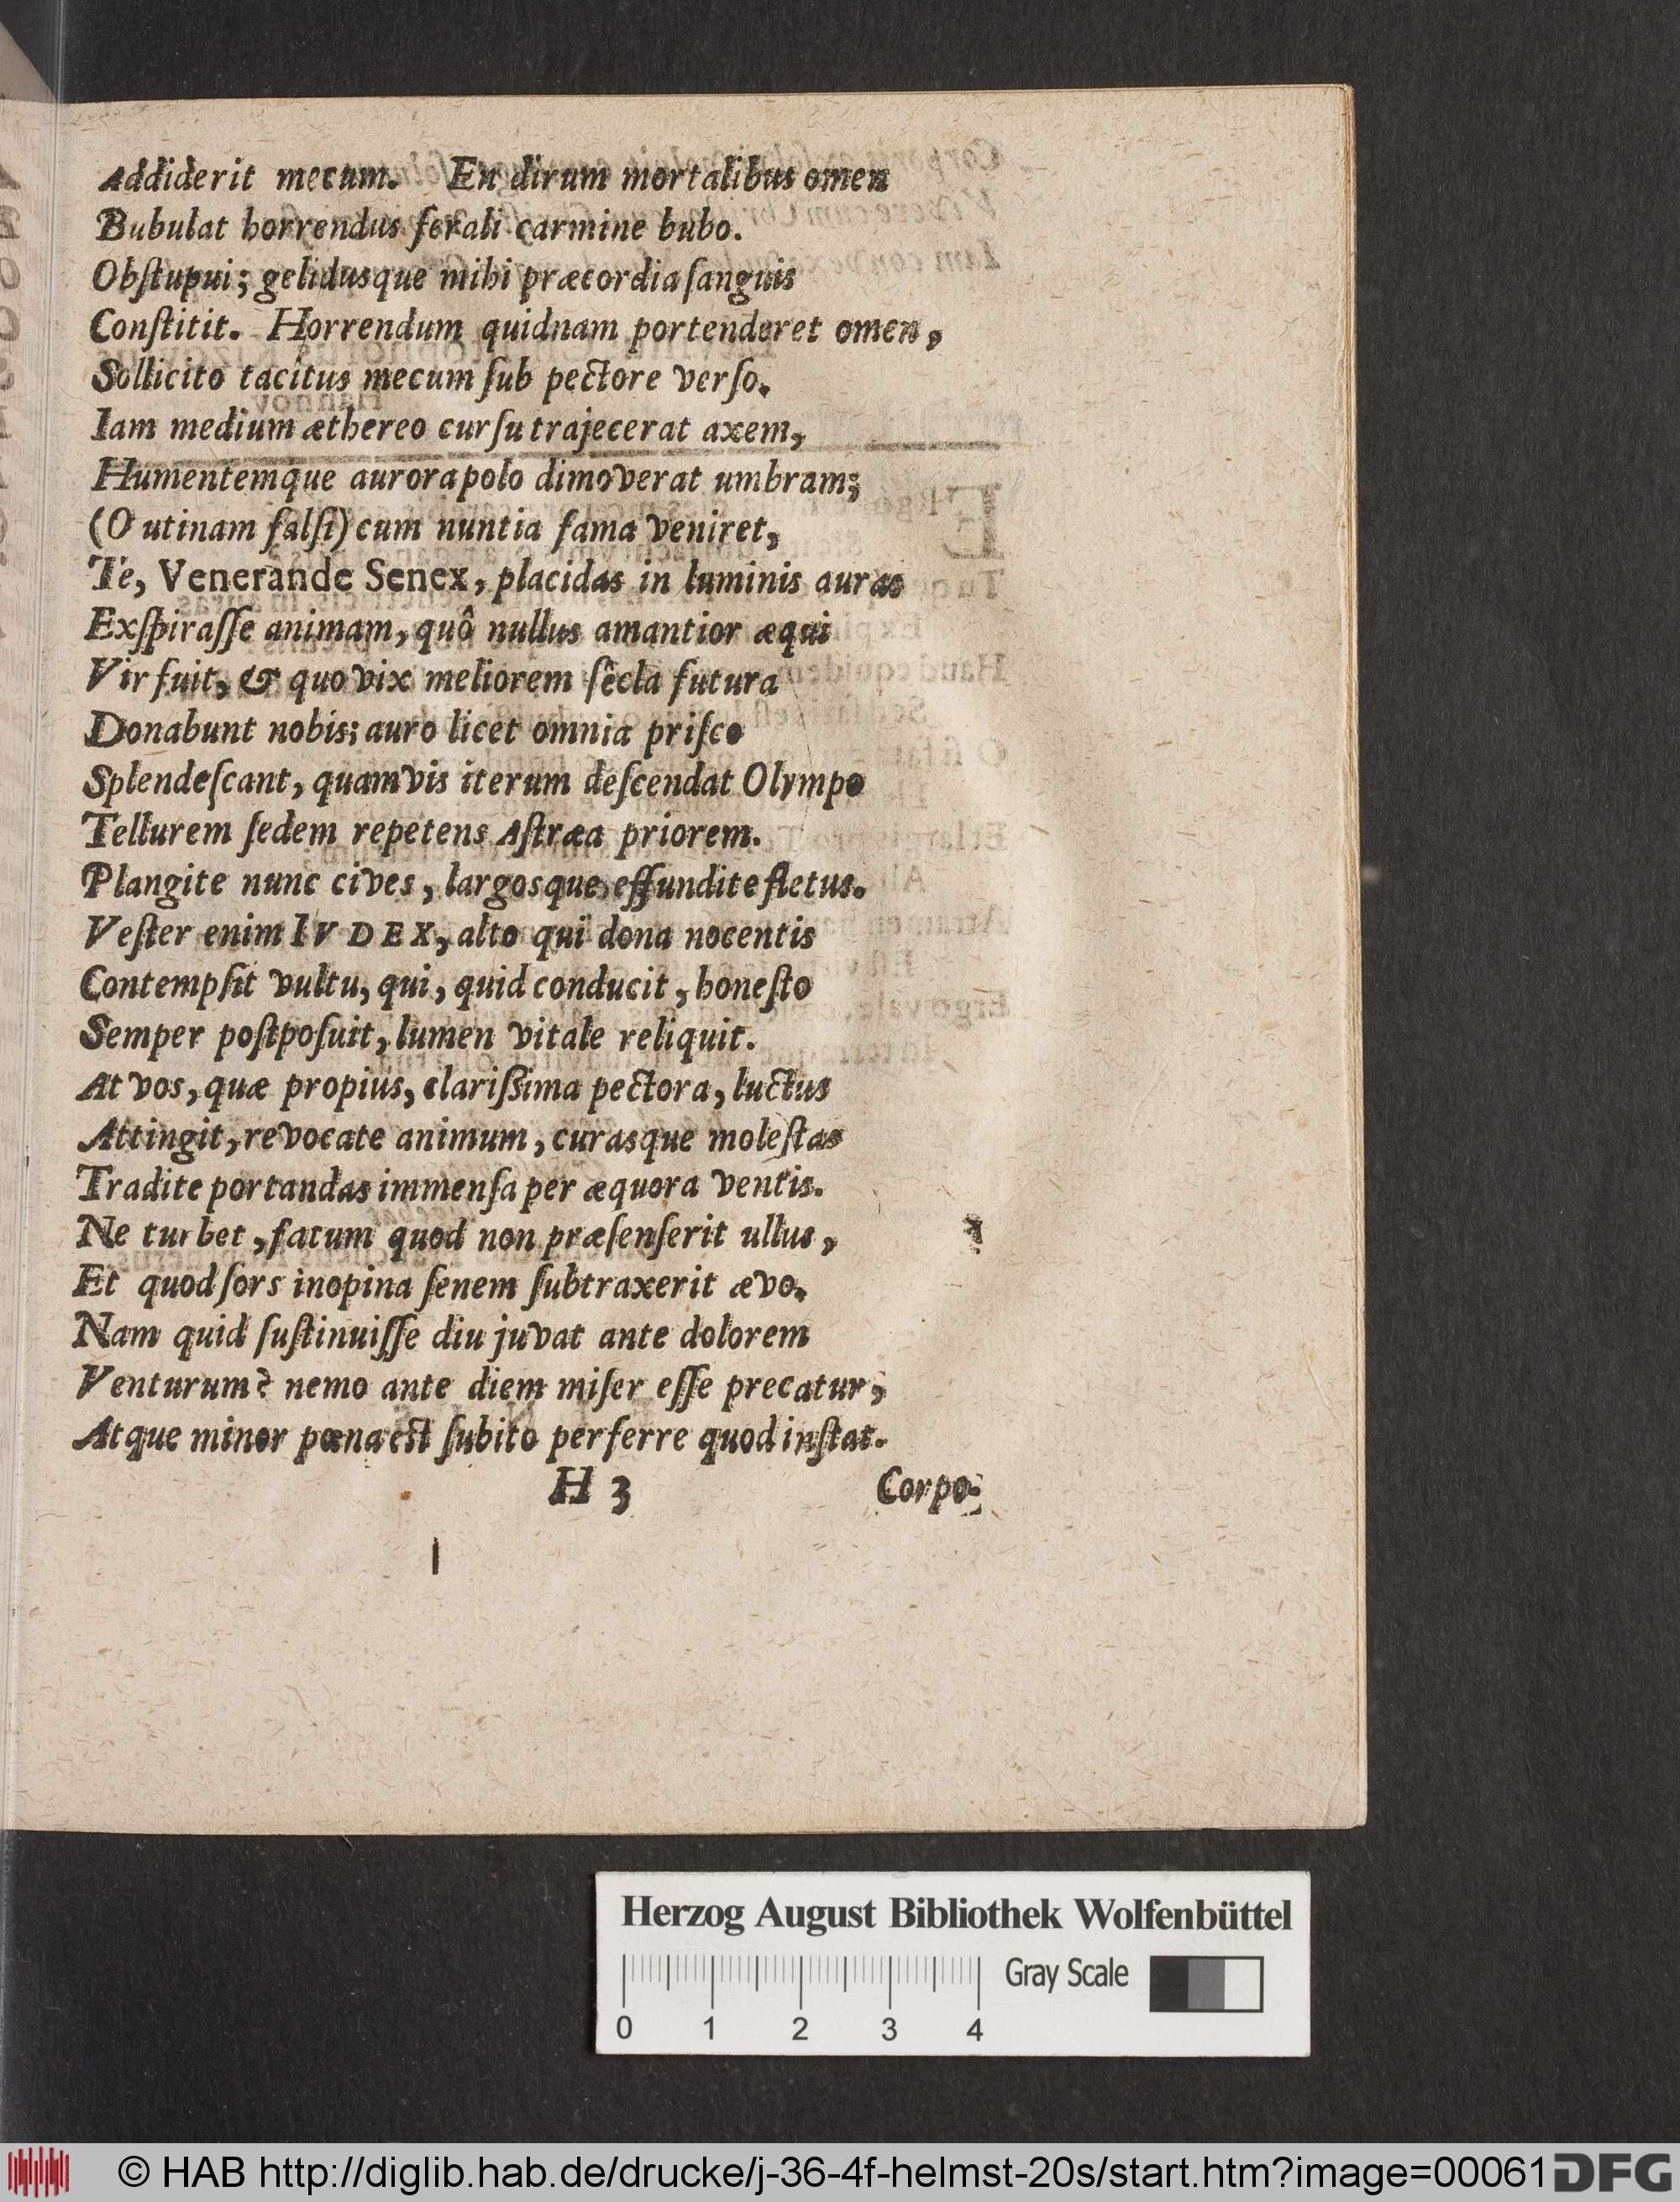 Addiderit mecum. En dirum mortalibus omen
Bubulat horrendus ferali carmine bubo.
Obſtupui; gelidusque mihi præcordia ſanguis
Conſtitit. Horrendum quidnam portenderet omen,
Sollicito tacitus mecum ſub pectore verſo.
Iam medium æthereo curſu trajecerat axem,
Humentemque aurora polo dimoverat umbram;
(O utinam falſi) cum nuntia fama veniret,
Te, Venerande Senex, placidas in luminis auras
Exſpiraſſe animam, quô nullus amantior æqui
Vir fuit, & quo vix meliorem ſêcla futura
Donabunt nobis; auro licet omnia priſco
Splendeſcant, quamvis iterum deſcendat Olympo
Tellurem ſedem repetens Aſtræa priorem.
Plangite nunc cives, largosque effundite fletus.
Veſter enim IVDEX, alto qui dona nocentis
Contempſit vultu, qui, quid conducit, honeſto
Semper poſtpoſuit, lumen vitale reliquit.
At vos, quæ propius, clariſsima pectora, luctus
Attingit, revocate animum, curasque moleſtas
Tradite portandas immenſa per æquora ventis.
Ne turbet, fatum quod non præſenſerit ullus,
Et quod ſors inopina ſenem ſubtraxerit ævo.
Nam quid ſuſtinuiſſe diu juvat ante dolorem
Venturum? nemo ante diem miſer eſſe precatur,
Atque minor pœna eſt ſubito perferre quod inſtat.
H 3 Corpo-
Herzog August Bibliothek Wolfenbüttel
Gray Scale
0 1 2 3 4
© HAB http://diglib.hab.de/drucke/j-36-4f-helmst-20s/start.htm?image=00061 DFG